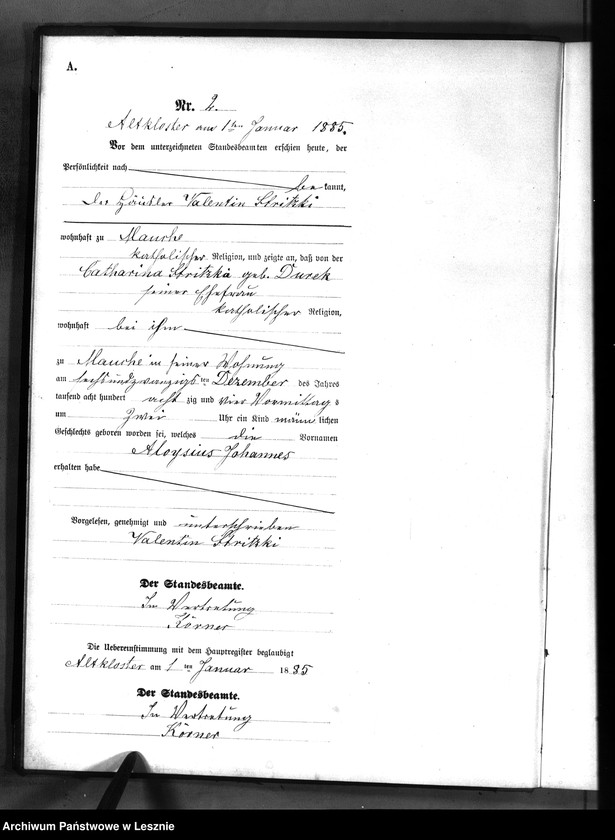 A.
Nr. 2.
Altkloster am 1ten Januar 1885.
Vor dem unterzeichneten Standesbeamten erschien heute, der
Persönlichkeit nach
be kannt,
der Häusler Valentin Strikki
wohnhaft zu Mauche
katholischer Religion, und zeigte an, daß von der
Catharina Strikki geb. Durek
seiner Ehefrau
katholischer Religion,
wohnhaft bei ihm
zu Mauche in seiner Wohnung
am sechsundzwanzigs ten Dezember des Jahres
tausend acht hundert acht zig und vier Vormittag s
um zwei Uhr ein Kind männ lichen
Geschlechts geboren worden sei, welches die Vornamen
Aloysius Johannes
erhalten habe
Vorgelesen, genehmigt und unterschrieben
Valentin Strikki
Der Standesbeamte.
In Vertretung
Körner
Die Uebereinstimmung mit dem Hauptregister beglaubigt
Altkloster am 1 ten Januar 1885
Der Standesbeamte.
In Vertretung
Körner
Archiwum Państwowe w Lesznie